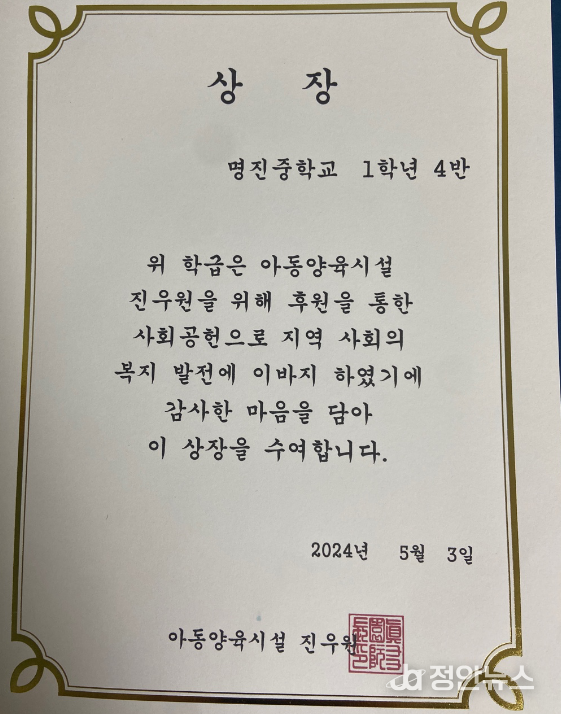 상 장
명진중학교 1학년 4반
위 학급은 아동양육시설
진우원을 위해 후원을 통한
사회공헌으로 지역 사회의
복지 발전에 이바지 하였기에
감사한 마음을 담아
이 상장을 수여합니다.
2024년 5월 3일
아동양육시설 진우원
정안뉴스